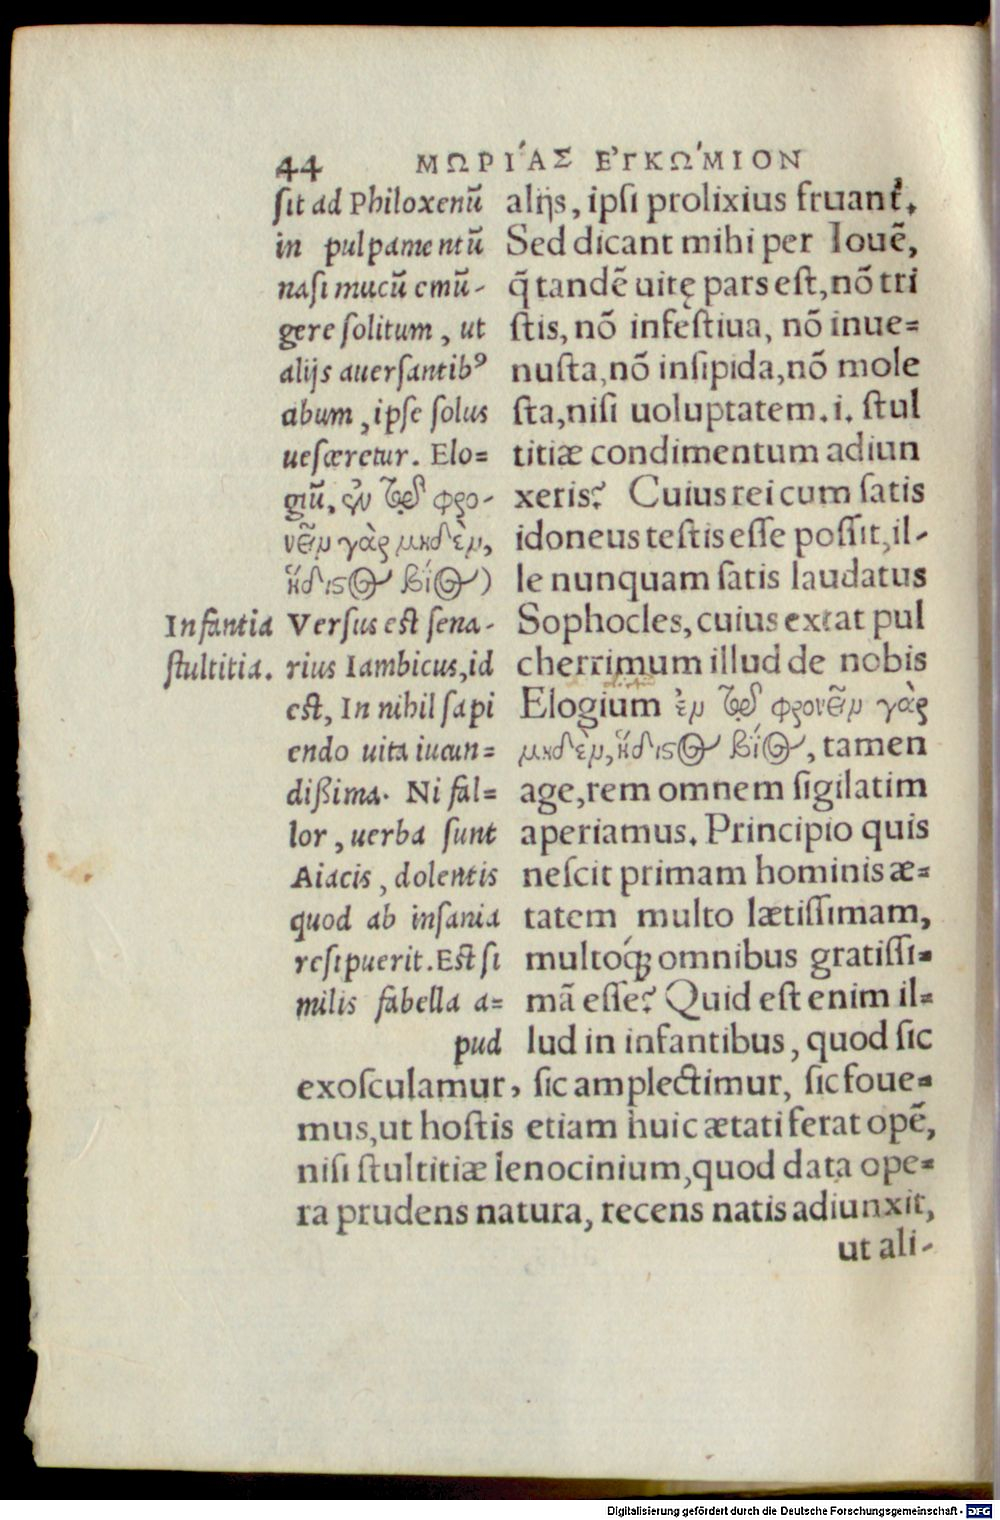 44 ΜΩΡΙ´ΑΣ ΕʼΓΚΩ´ΜΙΟΝ
ſit ad Philoxenũ
in pulpamentũ
naſi mucũ emũ-
gere ſolitum, ut
alijs auerſantibꝰ
cibum, ipſe ſolus
ueſceretur. Elo=
giũ, ἐν τῷ φρο-
νεῖν γὰρ μηδὲν,
ἥδιστος βίος)
Verſus est ſena-
rius Iambicus, id
est, In nihil ſapi
endo uita iucun=
dißima. Ni fal=
lor, uerba ſunt
Aiacis, dolentis
quod ab inſania
reſipuerit. Est ſi
milis fabella a=
pud
Infantia
ſtultitia.
alijs, ipſi prolixius fruant᷑.
Sed dicant mihi per Iouẽ,
q̃ tandẽ uitę pars eſt, nõ tri
ſtis, nõ infeſtiua, nõ inue=
nuſta, nõ inſipida, nõ mole
ſta, niſi uoluptatem .i. ſtul
titiæ condimentum adiun
xeris? Cuius rei cum ſatis
idoneus teſtis eſſe poſſit, il-
le nunquam ſatis laudatus
Sophocles, cuius extat pul
cherrimum illud de nobis
Elogium ἐν τῷ φρονεῖν γὰρ
μηδὲν, ἥδιστος βίος, tamen
age, rem omnem ſigilatim
aperiamus. Principio quis
neſcit primam hominis æ=
tatem multo lætiſſimam,
multoq́ꝫ omnibus gratiſſi=
mã eſſe? Quid eſt enim il=
lud in infantibus, quod ſic
exoſculamur, ſic amplectimur, ſic foue=
mus, ut hoſtis etiam huic ætati ferat opẽ,
niſi ſtultitiæ lenocinium, quod data ope=
ra prudens natura, recens natis adiunxit,
ut ali-
Digitalisierung gefördert durch die Deutsche Forschungsgemeinschaft - DFG